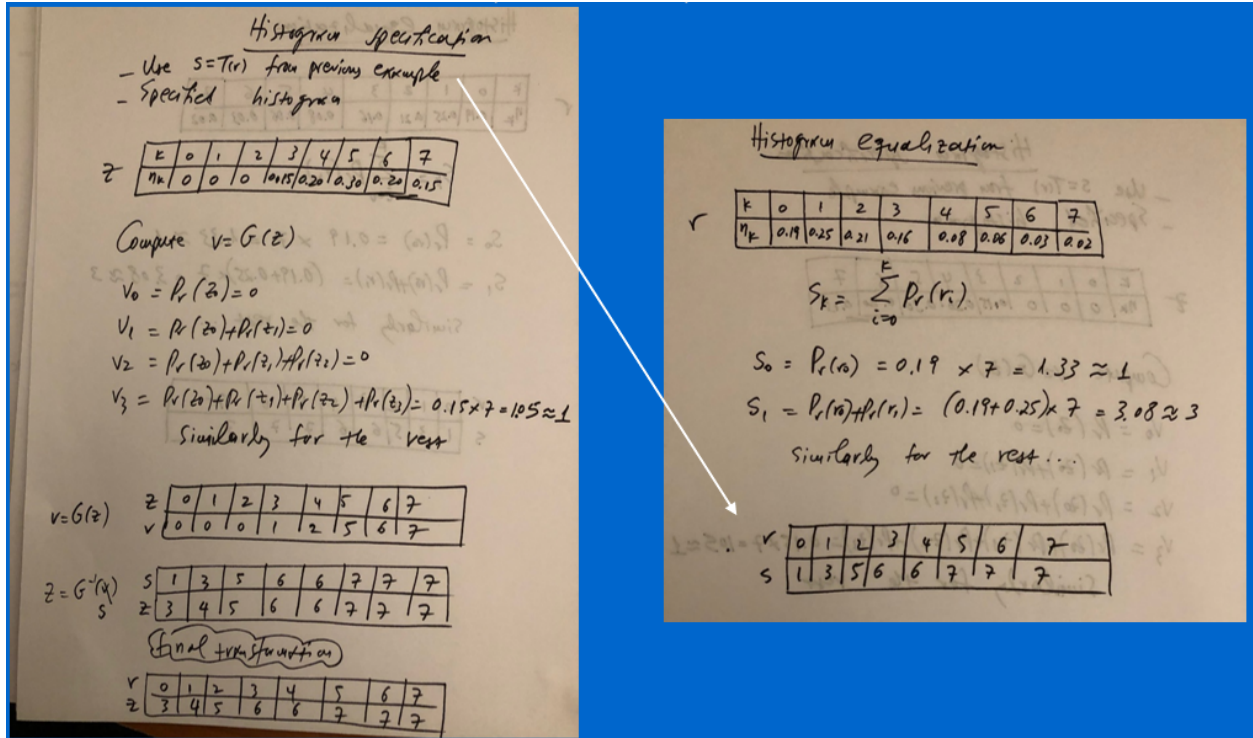 Histogram specification
- Use S=T(r) from previous example
- Specified histogram
z
k 0 1 2 3 4 5 6 7
nk 0 0 0 0.15 0.20 0.30 0.20 0.15
Compute V=G(z)
V0 = Pr(z0)=0
V1 = Pr(z0)+Pr(z1)=0
V2 = Pr(z0)+Pr(z1)+Pr(z2)=0
V3 = Pr(z0)+Pr(z1)+Pr(z2)+Pr(z3)=0.15x7=1.05≈1
Similarly for the rest
v=G(z)
z 0 1 2 3 4 5 6 7
v 0 0 0 1 2 5 6 7
z=G⁻¹(v)
s
s 1 3 5 6 6 7 7 7
z 3 4 5 6 6 7 7 7
final transformation
r 0 1 2 3 4 5 6 7
z 3 4 5 6 6 7 7 7
Histogram equalization
r
k 0 1 2 3 4 5 6 7
nk 0.19 0.25 0.21 0.16 0.08 0.06 0.03 0.02
Sk = Σ Pr(ri)
k
i=0
S0 = Pr(r0) = 0.19 x 7 = 1.33 ≈ 1
S1 = Pr(r0)+Pr(r1) = (0.19+0.25)x 7 = 3.08 ≈ 3
Similarly for the rest...
r 0 1 2 3 4 5 6 7
s 1 3 5 6 6 7 7 7